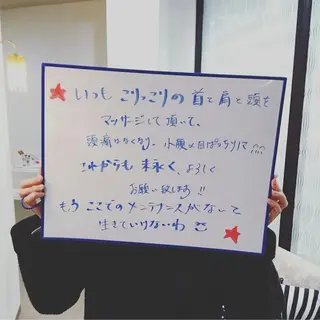 ★いつも こりっこりの 首と肩と頭を
マッサージして頂いて、
頭痛はなくなり、小顔&目ぱっちりで
これからも 末永く、よろしく
お願い致します!!
もう ここでのメンテナンスがないと
生きていけない…わ ★